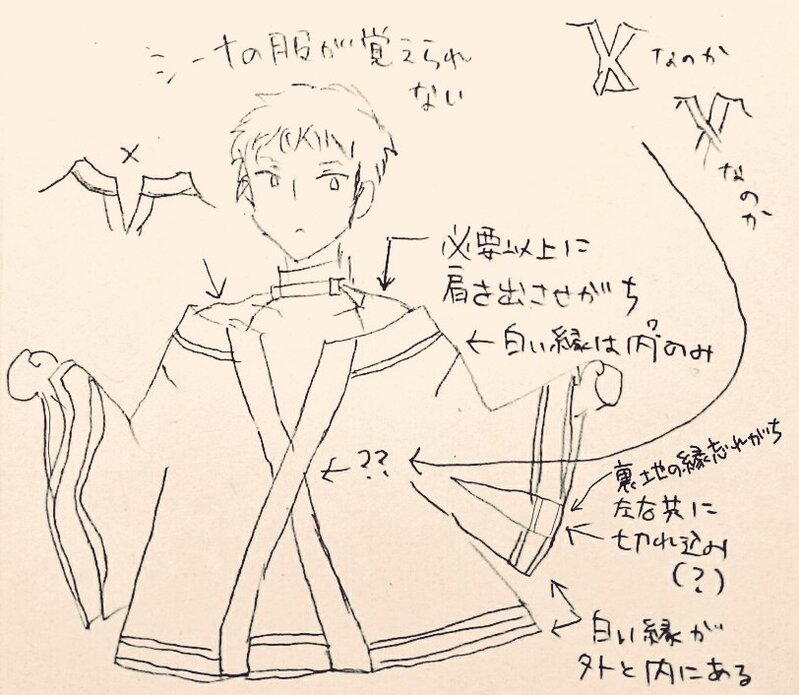 シーナの服が覚えられ
ない
なのか
なのか
×
必要以上に
肩を出させがち
←白い縁は内のみ
ウ
←??←
裏地の縁忘れがち
左右共に
切れ込み
(?)
白い縁が
外と内にある